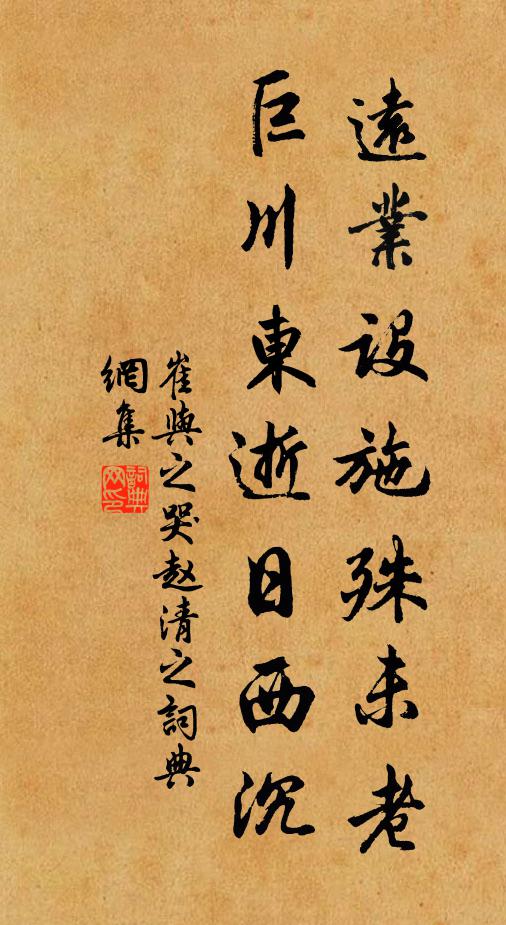 遠業設施殊未老
巨川東逝日西沉
崔與之哭赵清之詞典
網集
詞典
网印